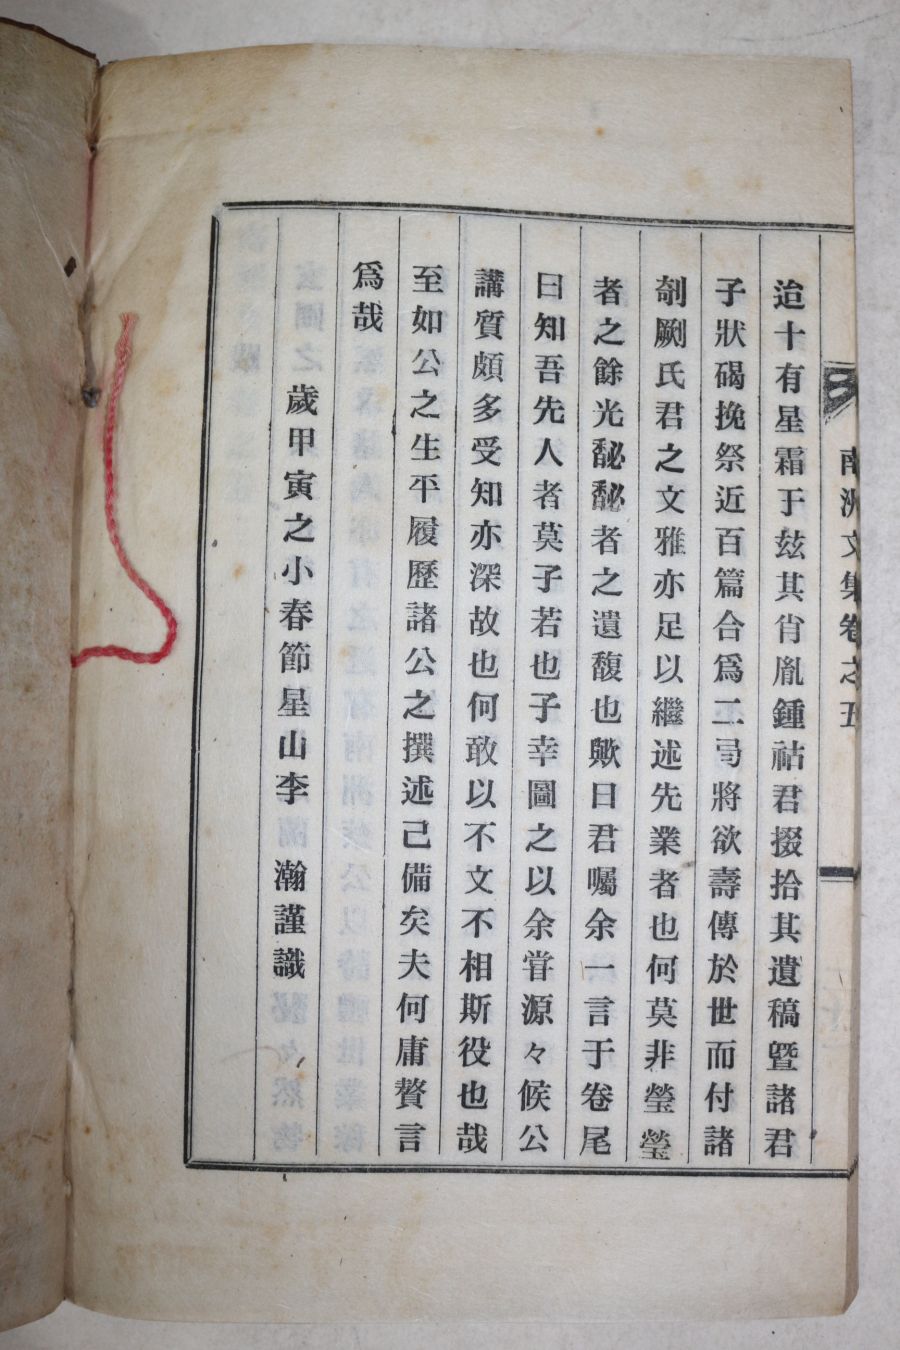 南洲文集卷之五
迨十有星霜于玆其肖胤鍾祜君掇拾其遺稿曁諸君
子狀碣挽祭近百篇合爲二弓將欲壽傳於世而付諸
剞劂氏君之文雅亦足以繼述先業者也何莫非瑩瑩
者之餘光馝馝者之遺馥也歟日君囑余一言于卷尾
曰知吾先人者莫子若也子幸圖之以余甞源々候公
講質頗多受知亦深故也何敢以不文不相斯役也哉
至如公之生平履歷諸公之撰述己備矣夫何庸贅言
爲哉
歲甲寅之小春節星山李 瀚謹識